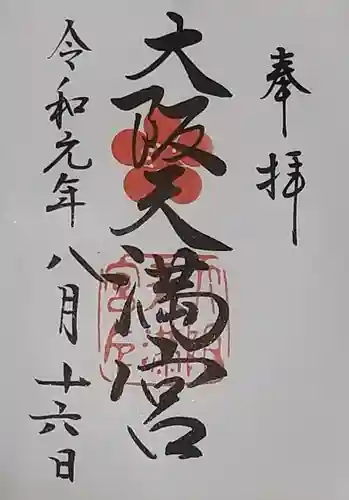 奉拝
大阪天満宮
令和元年八月十六日